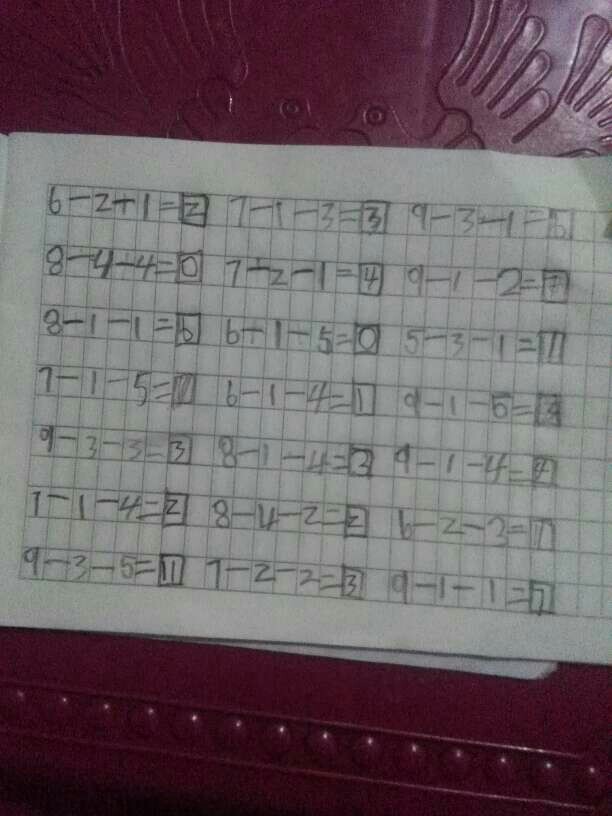 6-2+1=2 7-1-3=3 9-3-1=5
8-4-4=0 7-2-1=4 9-1-2=7
8-1-1=6 6-1-5=0 5-3-1=1
7-1-5=1 6-1-4=1 9-1-5=3
9-3-3=3 8-1-4=3 9-1-4=4
7-1-4=2 8-4-2=2 6-2-3=1
9-3-5=1 7-2-2=3 9-1-1=7